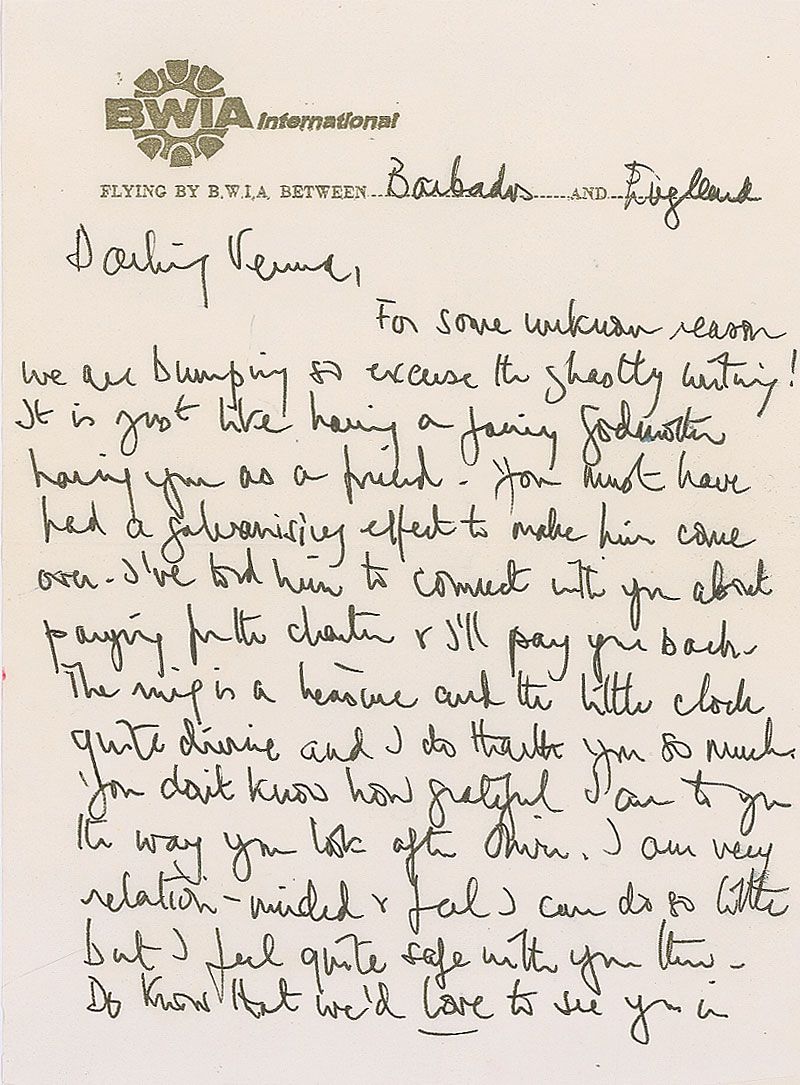 BWIA International
FLYING BY B.W.I.A. BETWEEN Barbados AND England
Darling Verna,
For some unknown reason
we are bumping so excuse the ghastly writing!
It is just like having a fairy Godmother
having you as a friend - You must have
had a galvanising effect to make him come
over - I've told him to connect with you about
paying for the charter & I'll pay you back -
The mug is a treasure and the little clock
quite divine and I do thank you so much.
You don't know how grateful I am to you
the way you look after . I am very
relation-minded & feel I can do so little
but I feel quite safe with you there -
Do know that we'd love to see you in